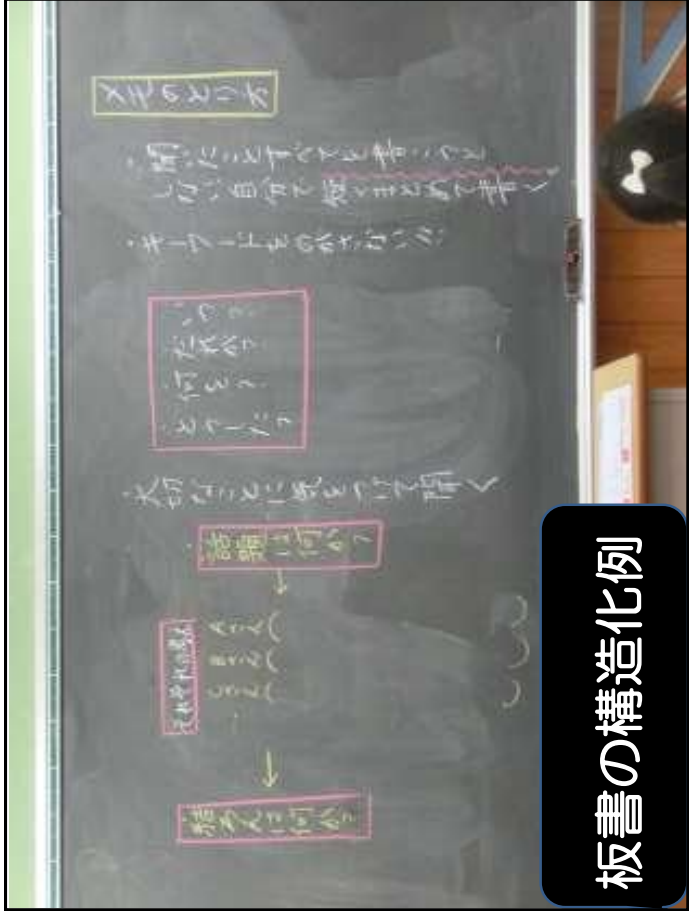 メモのとり方
・聞いたことすべてを書こうと
しない自分で短くまとめて書く
・キーワードをのがさない
だれが?
何を?
・大切なことに気をつけて聞く
・話題は何か?
↓
それぞれの意見
Aさん( )
Bさん( )
Cさん( )
↓
結ろんは何か?
板書の構造化例